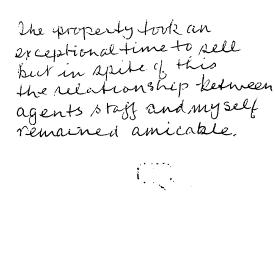 The property took an
exceptional time to sell
but in spite of this
the relationship between
agents staff and myself
remained amicable.